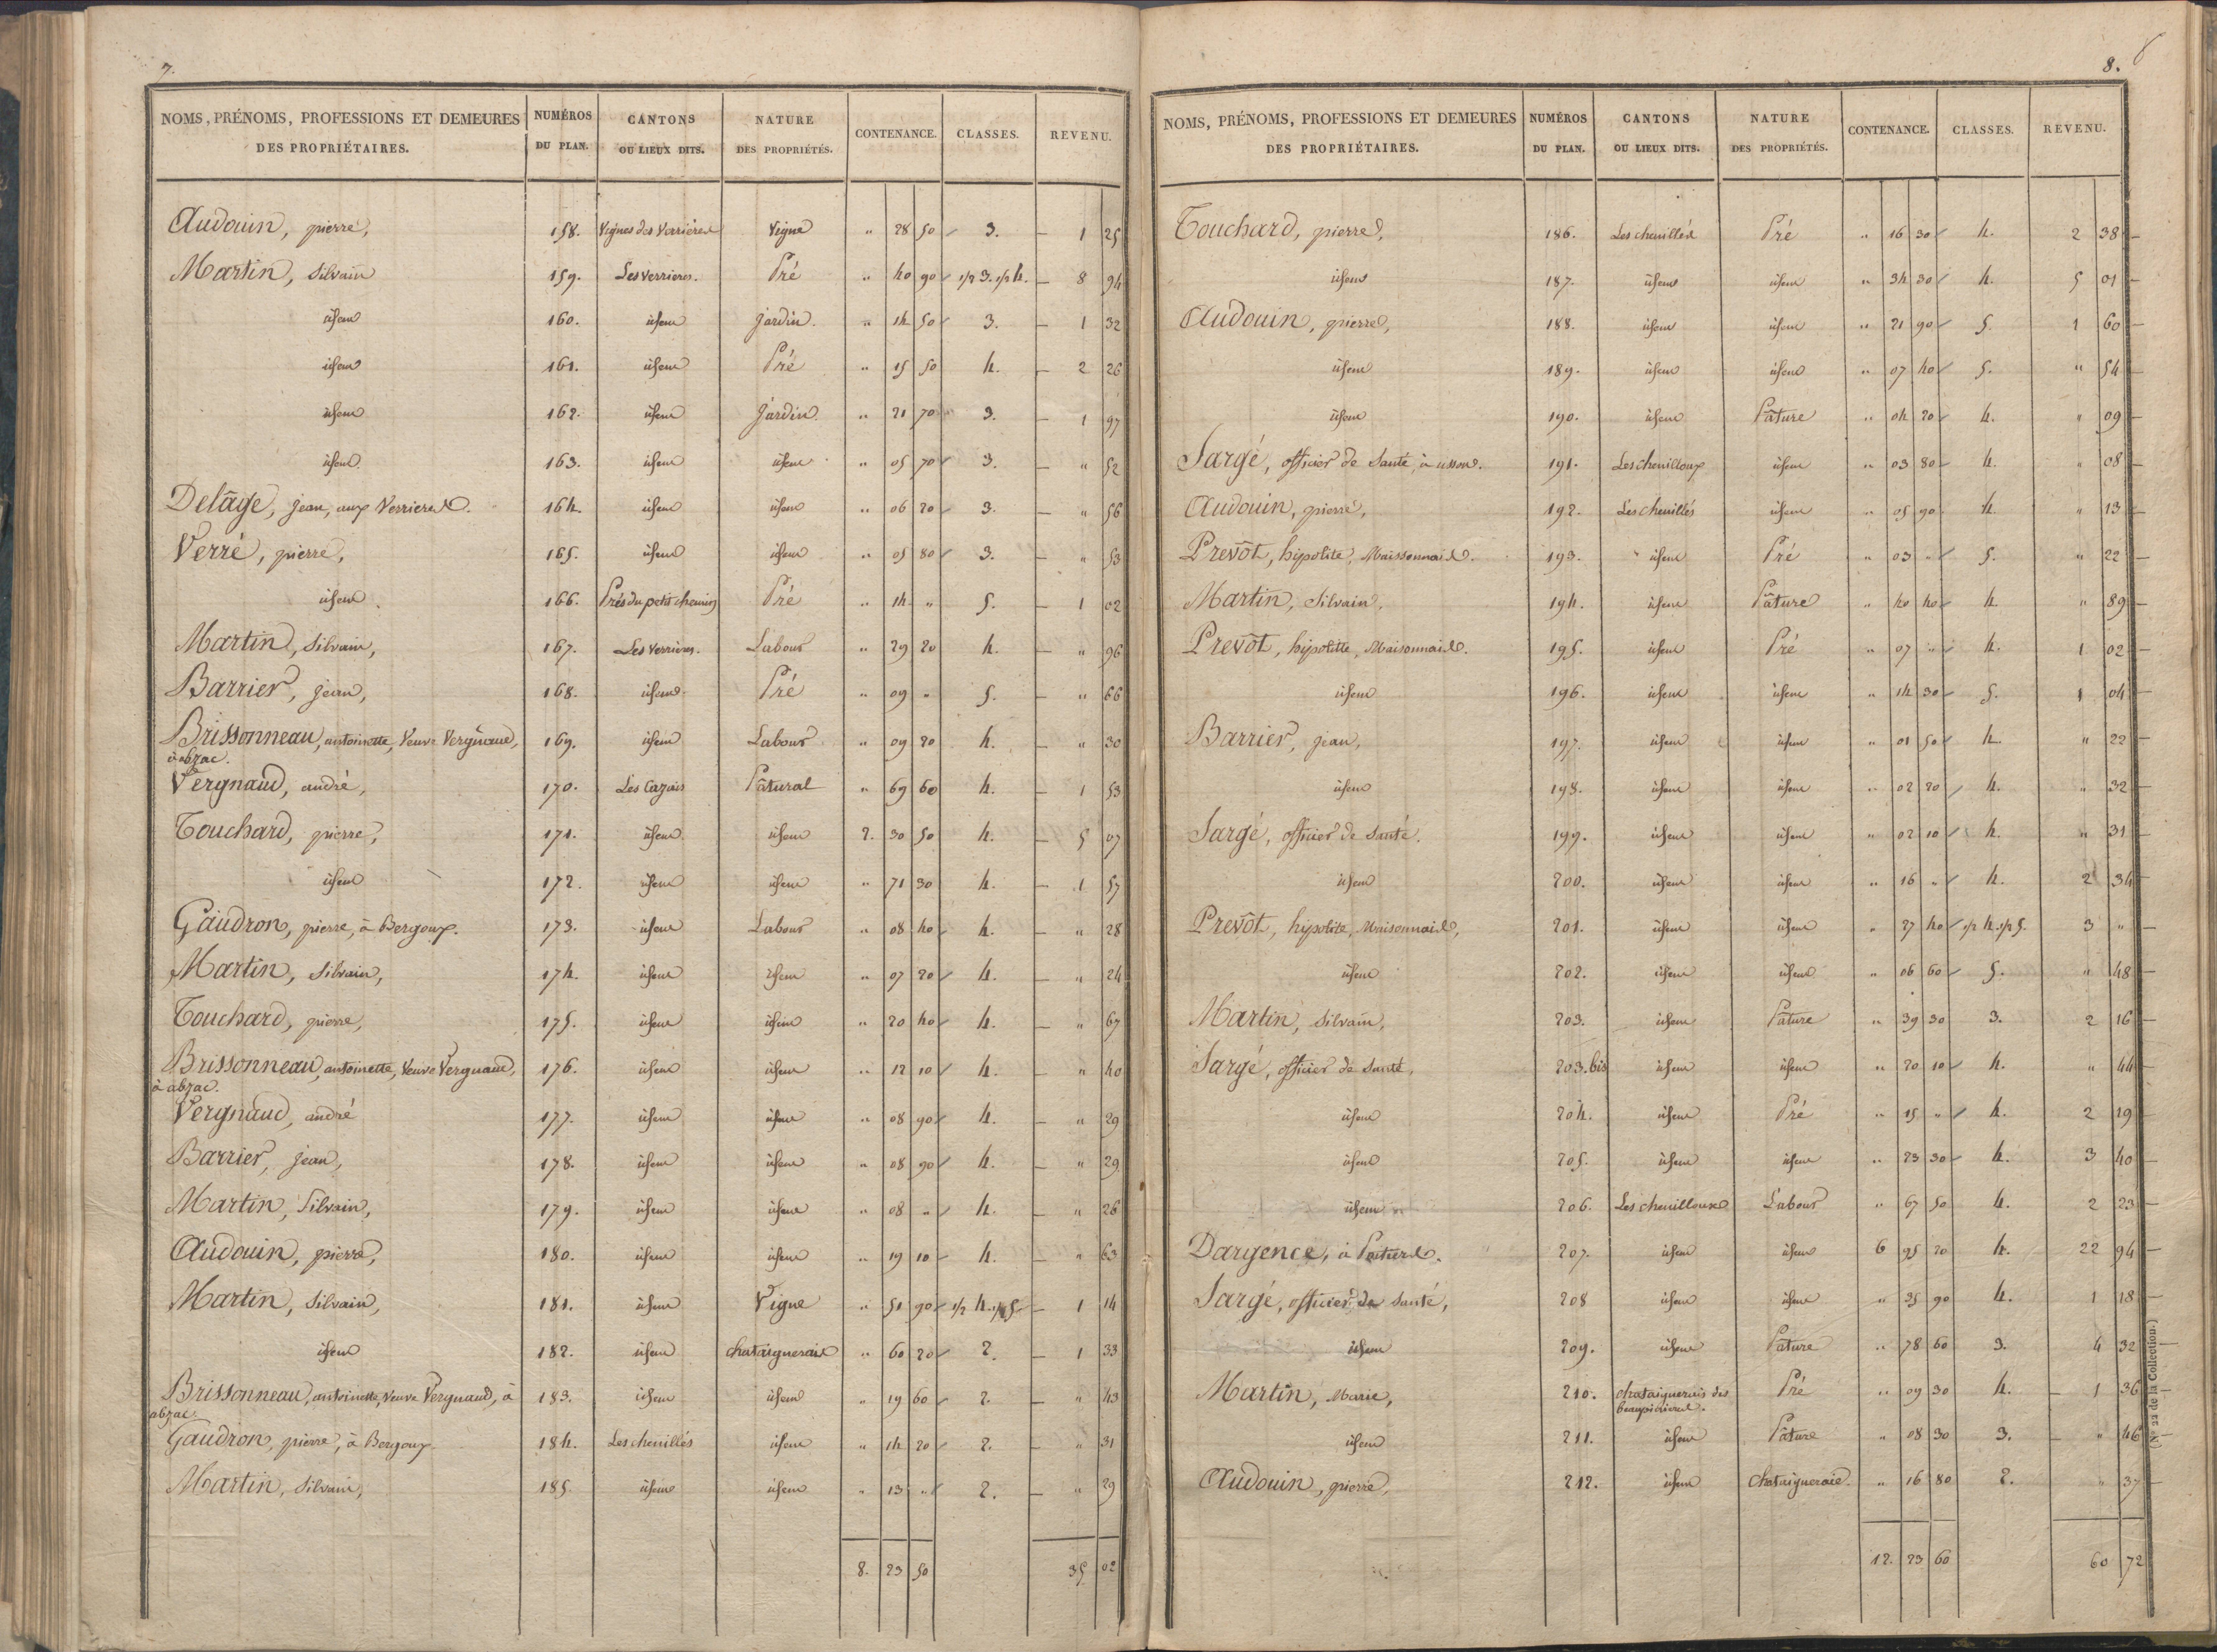 7.
NOMS, PRÉNOMS, PROFESSIONS ET DEMEURES DES PROPRIÉTAIRES. NUMÉROS DU PLAN. CANTONS OU LIEUX DITS. NATURE DES PROPRIÉTÉS. CONTENANCE. CLASSES. REVENU.
Audouin, pierre, 158. Vignes des Verrieres Vigne " 28 50 3. 1 25
Martin, Silvain 159. Les Verrieres. Pré " 40 90 1/2 3. 1/2 4. 8 94
idem 160. idem jardin. " 14 50 3. 1 32
idem 161. idem Pré " 15 50 4. 2 26
idem 162. idem Jardin. " 21 70 3. 1 97
idem 163. idem idem " 05 70 3. " 52
Delâge, jean, aux Verrieres. 164. idem idem " 06 20 3. " 56
Verré, pierre, 165. idem idem " 05 80 3. " 53
idem 166. Prés du petit chemin Pré " 14 " 5. 1 02
Martin, Silvain, 167. Les Verrieres. Labour " 29 20 4. " 96
Barrier, jean, 168. idem Pré " 09 " 5. " 66
Brissonneau, antoinette, Veuve Vergnaud, à abzac. 169. idem Labour " 09 20 4. " 30
Vergnaud, andré, 170. Les Cazais Pâtural " 69 60 4. 1 53
Touchard, pierre, 171. idem idem 2. 30 50 4. 5 07
idem 172. idem idem " 71 30 4. 1 57
Gaudron, pierre, à Bergoux. 173. idem Labour " 08 40 4. " 28
Martin, Silvain, 174. idem idem " 07 20 4. " 24
Touchard, pierre, 175. idem idem " 20 40 4. " 67
Brissonneau, antoinette, Veuve Vergnaud, à abzac. 176. idem idem " 12 10 4. " 40
Vergnaud, andré 177. idem idem " 08 90 4. " 29
Barrier, jean, 178. idem idem " 08 90 4. " 29
Martin, Silvain, 179. idem idem " 08 " 4. " 26
Audouin, pierre, 180. idem idem " 19 10 4. " 63
Martin, Silvain, 181. idem Vigne " 51 90 1/2 4. 1/2 5. 1 14
idem 182. idem chataigneraie " 60 20 2. 1 33
Brissonneau, antoinette, Veuve Vergnaud, à abzac. 183. idem idem " 19 60 2. " 43
Gaudron, pierre, à Bergoux. 184. Les cheuillés idem " 14 20 2. " 31
Martin, Silvain, 185. idem idem " 13 " 2. " 29
8. 23 50 35 02
8.
NOMS, PRÉNOMS, PROFESSIONS ET DEMEURES DES PROPRIÉTAIRES. NUMÉROS DU PLAN. CANTONS OU LIEUX DITS. NATURE DES PROPRIÉTÉS. CONTENANCE. CLASSES. REVENU.
Touchard, pierre, 186. Les cheuillés Pré " 16 30 4. 2 38
idem 187. idem idem " 34 30 4. 5 01
Audouin, pierre, 188. idem idem " 21 90 5. 1 60
idem 189. idem idem " 07 40 5. " 54
idem 190. idem Pâture " 04 20 4. " 09
Sargé, officier de Santé, à usson. 191. Les cheuilloux idem " 03 80 4. " 08
Audouin, pierre, 192. Les cheuillés idem " 05 90 4. " 13
Prevôt, hipolite, Maissonnais. 193. idem Pré " 03 " 5. " 22
Martin, Silvain, 194. idem Pâture " 40 40 4. " 89
Prevôt, hipolitte, Maisonnais. 195. idem Pré " 07 " 4. 1 02
idem 196. idem idem " 14 30 5. 1 04
Barrier, jean, 197. idem idem " 01 50 4. " 22
idem 198. idem idem " 02 20 4. " 32
Sargé, officier de Santé. 199. idem idem " 02 10 4. " 31
idem 200. idem idem " 16 " 4. 2 34
Prevôt, hipolite, Maisonnais, 201. idem idem " 27 40 1/2 4. 1/2 5. 3 "
idem 202. idem idem " 06 60 5. " 48
Martin, Silvain, 203. idem Pâture " 39 30 3. 2 16
Sargé, officier de Santé, 203. bis idem idem " 20 10 4. " 44
idem 204. idem Pré " 15 " 4. 2 19
idem 205. idem idem " 23 30 4. 3 40
idem 206. Les cheuilloux Labour " 67 50 4. 2 23
Dargence, à 207. idem idem 6 95 20 4. 22 94
Sargé, officier de Santé, 208 idem idem " 35 90 4. 1 18
idem 209. idem Pâture " 78 60 3. 4 32
Martin, Marie, 210. chataignerais des Pré " 09 30 4. 1 36
idem 211. idem Pâture " 08 30 3. " 46
Audouin, pierre, 212. idem Chataigneraie. " 16 80 2. " 37
12. 23 60 60 72
(N° 22 de la Collection.)